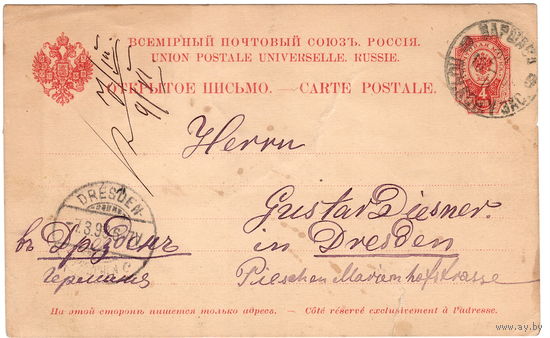 ВСЕМІРНЫЙ ПОЧТОВЫЙ СОЮЗЪ. РОССІЯ.
UNION POSTALE UNIVERSELLE. RUSSIE.
ОТКРЫТОЕ ПИСЬМО. — CARTE POSTALE.
4
Herrn
Gustav Diesner
in Dresden
DRESDEN
въ Дрезденъ
Германія
Pieschen Marienhofstrasse
На этой сторонѣ пишется только адресъ. — Côté réservé exclusivement à l'adresse.
www.ay.by